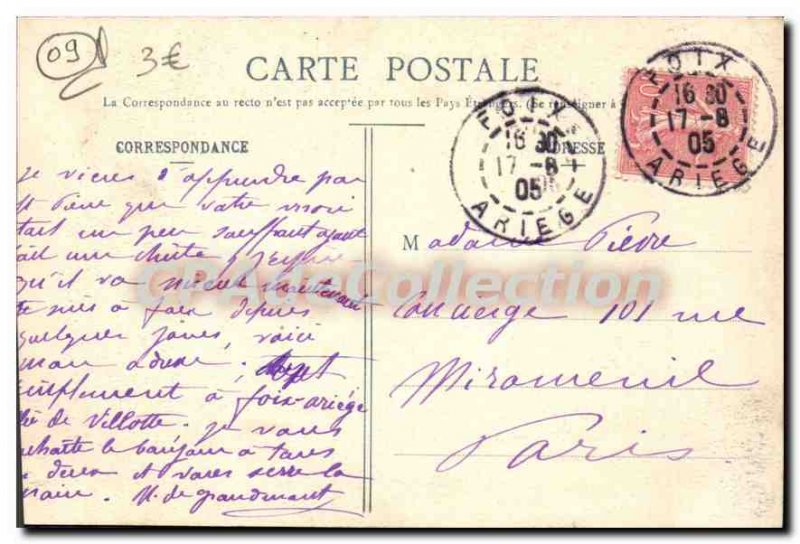 09
3€
CARTE POSTALE
La Correspondance au recto n'est pas acceptée par tous les Pays Étrangers. (Se renseigner à
CORRESPONDANCE
ADRESSE
FOIX
16 30
17 -8
05
ARIEGE
FOIX
16 30
17 -8
05
ARIEGE
je viens d'apprendre par
que votre mari
tait un peu souffrant ayant
ait une chute,
qu'il va mieux maintenant
suis à foix depuis
quelques jours, voici
mon adresse,
simplement à foix-ariège
de Villotte. je vous
ouhaite le bonjour à tous
deux et vous serre la
main. M. de grandmont
Madame Pièvre
Concierge 101 rue
Miromenil
Paris
CPAdeCollection